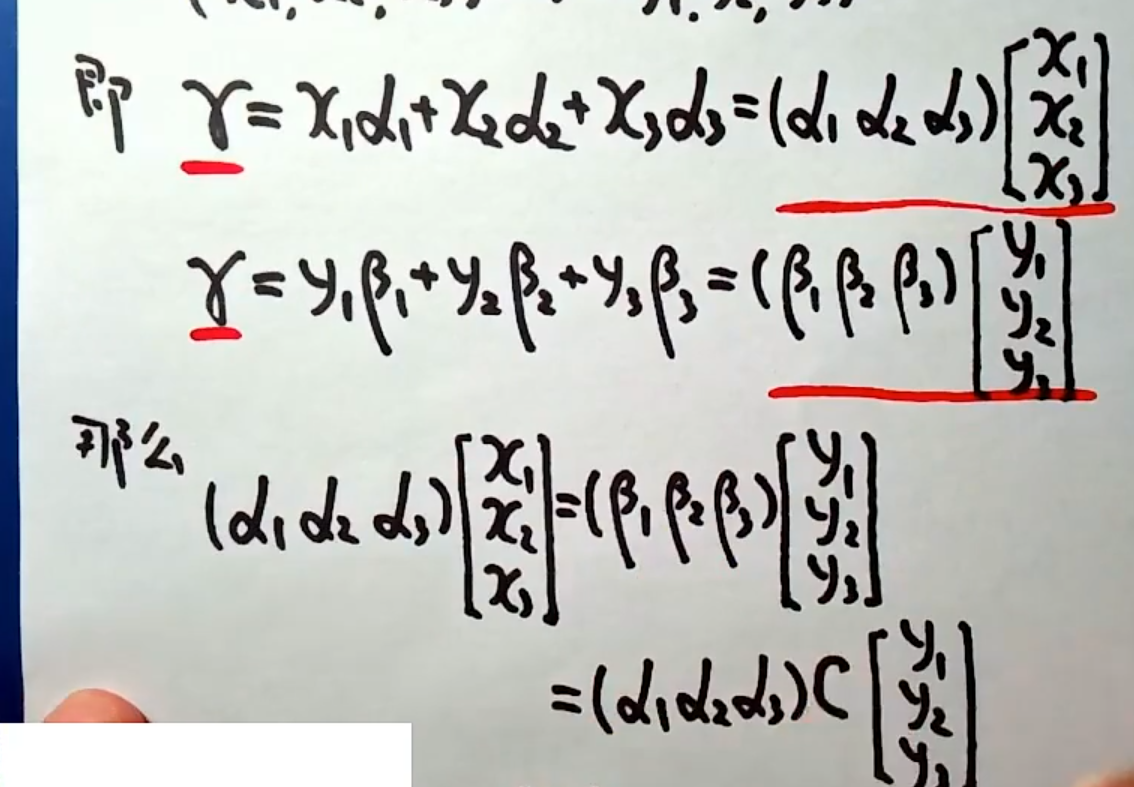 即 γ = x₁α₁ + x₂α₂ + x₃α₃ = (α₁ α₂ α₃) [x₁ x₂ x₃]
γ = y₁β₁ + y₂β₂ + y₃β₃ = (β₁ β₂ β₃) [y₁ y₂ y₃]
那么
(α₁ α₂ α₃) [x₁ x₂ x₃] = (β₁ β₂ β₃) [y₁ y₂ y₃]
= (α₁ α₂ α₃) C [y₁ y₂ y₃]